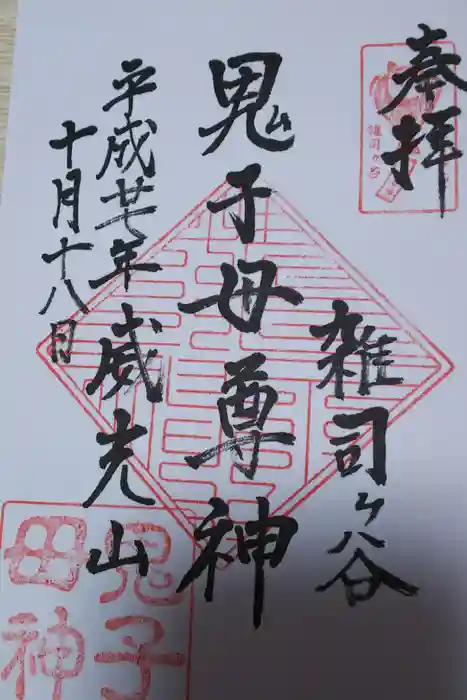 奉拝
雑司ヶ谷
鬼子母尊神
威光山
平成廿七年
十月十八日
雑司ヶ谷
鬼子
母神